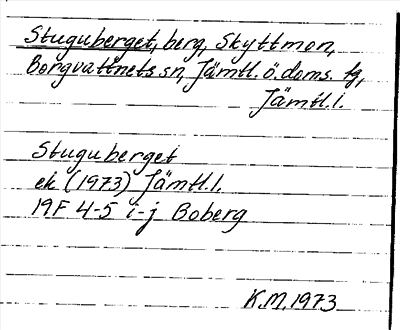 Stuguberget, berg, Skyttmon,
Borgvattnets sn, Jämtl. ö. doms. tg,
Jämtl. l.
Stuguberget
ek (1973) Jämtl. l.
19F 4-5 i-j Boberg
K.M. 1973